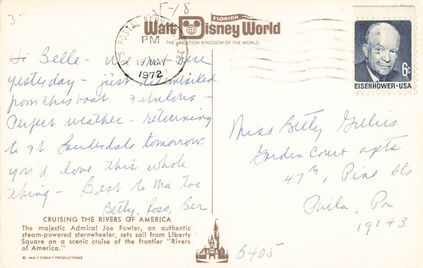 5-18
FLORIDA
Walt Disney World
THE VACATION KINGDOM OF THE WORLD.
U.S. POSTAL
PM
MAY
1972
6c
EISENHOWER·USA
Hi Belle - We were here
yesterday - just
from this boat. Fabulous -
Perfect weather - returning
to Ft. Lauderdale tomorrow.
you'd love this whole
thing - Best to Ma, too
Betty, Ross, Ber
Miss Betty
Garden Court apts
47th & Pine Sts
Phila, Pa
19143
CRUISING THE RIVERS OF AMERICA
The majestic Admiral Joe Fowler, an authentic
steam-powered sternwheeler, sets sail from Liberty
Square on a scenic cruise of the frontier "Rivers
of America."
© WALT DISNEY PRODUCTIONS
B405